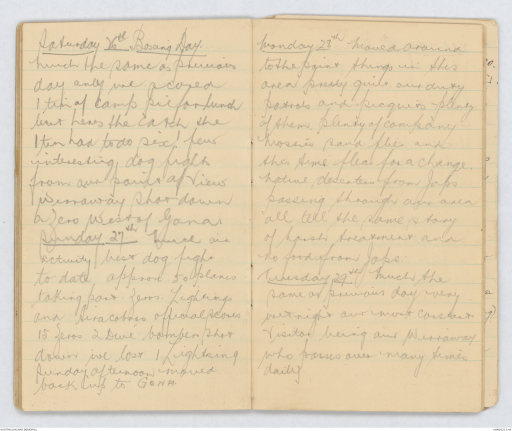 Saturday 26th Boxing Day
Much the same as previous
day only we scored
1 tin of camp pie for lunch
but heres the catch the
1 tin had to do six! few
interesting dog fights
from our point of view
Wirraway shot down
a Zero West of Gona.
Sunday 27th Much air
activity best dog fight
to date, approx 50 planes
taking part Zeros. Lightnings
and Airacobras official scores
15 Zeros 2 Dive bombers shot
down we lost 1 Lightning
Sunday afternoon moved
back up to GONA
Monday 28th Moved around
to the point things in this
area pretty quiet our duty
patrols and picquits plenty
of them, plenty of company
Mossies sand flies and
this time fleas for a change.
Native deserters from Japs
passing through our area
all tell the same story
of harsh treatment and
no food from Japs.
Tuesday 29th Much the
same as previous day very
wet night our most constant
visitor being our Wirraway
who passes over many times
daily